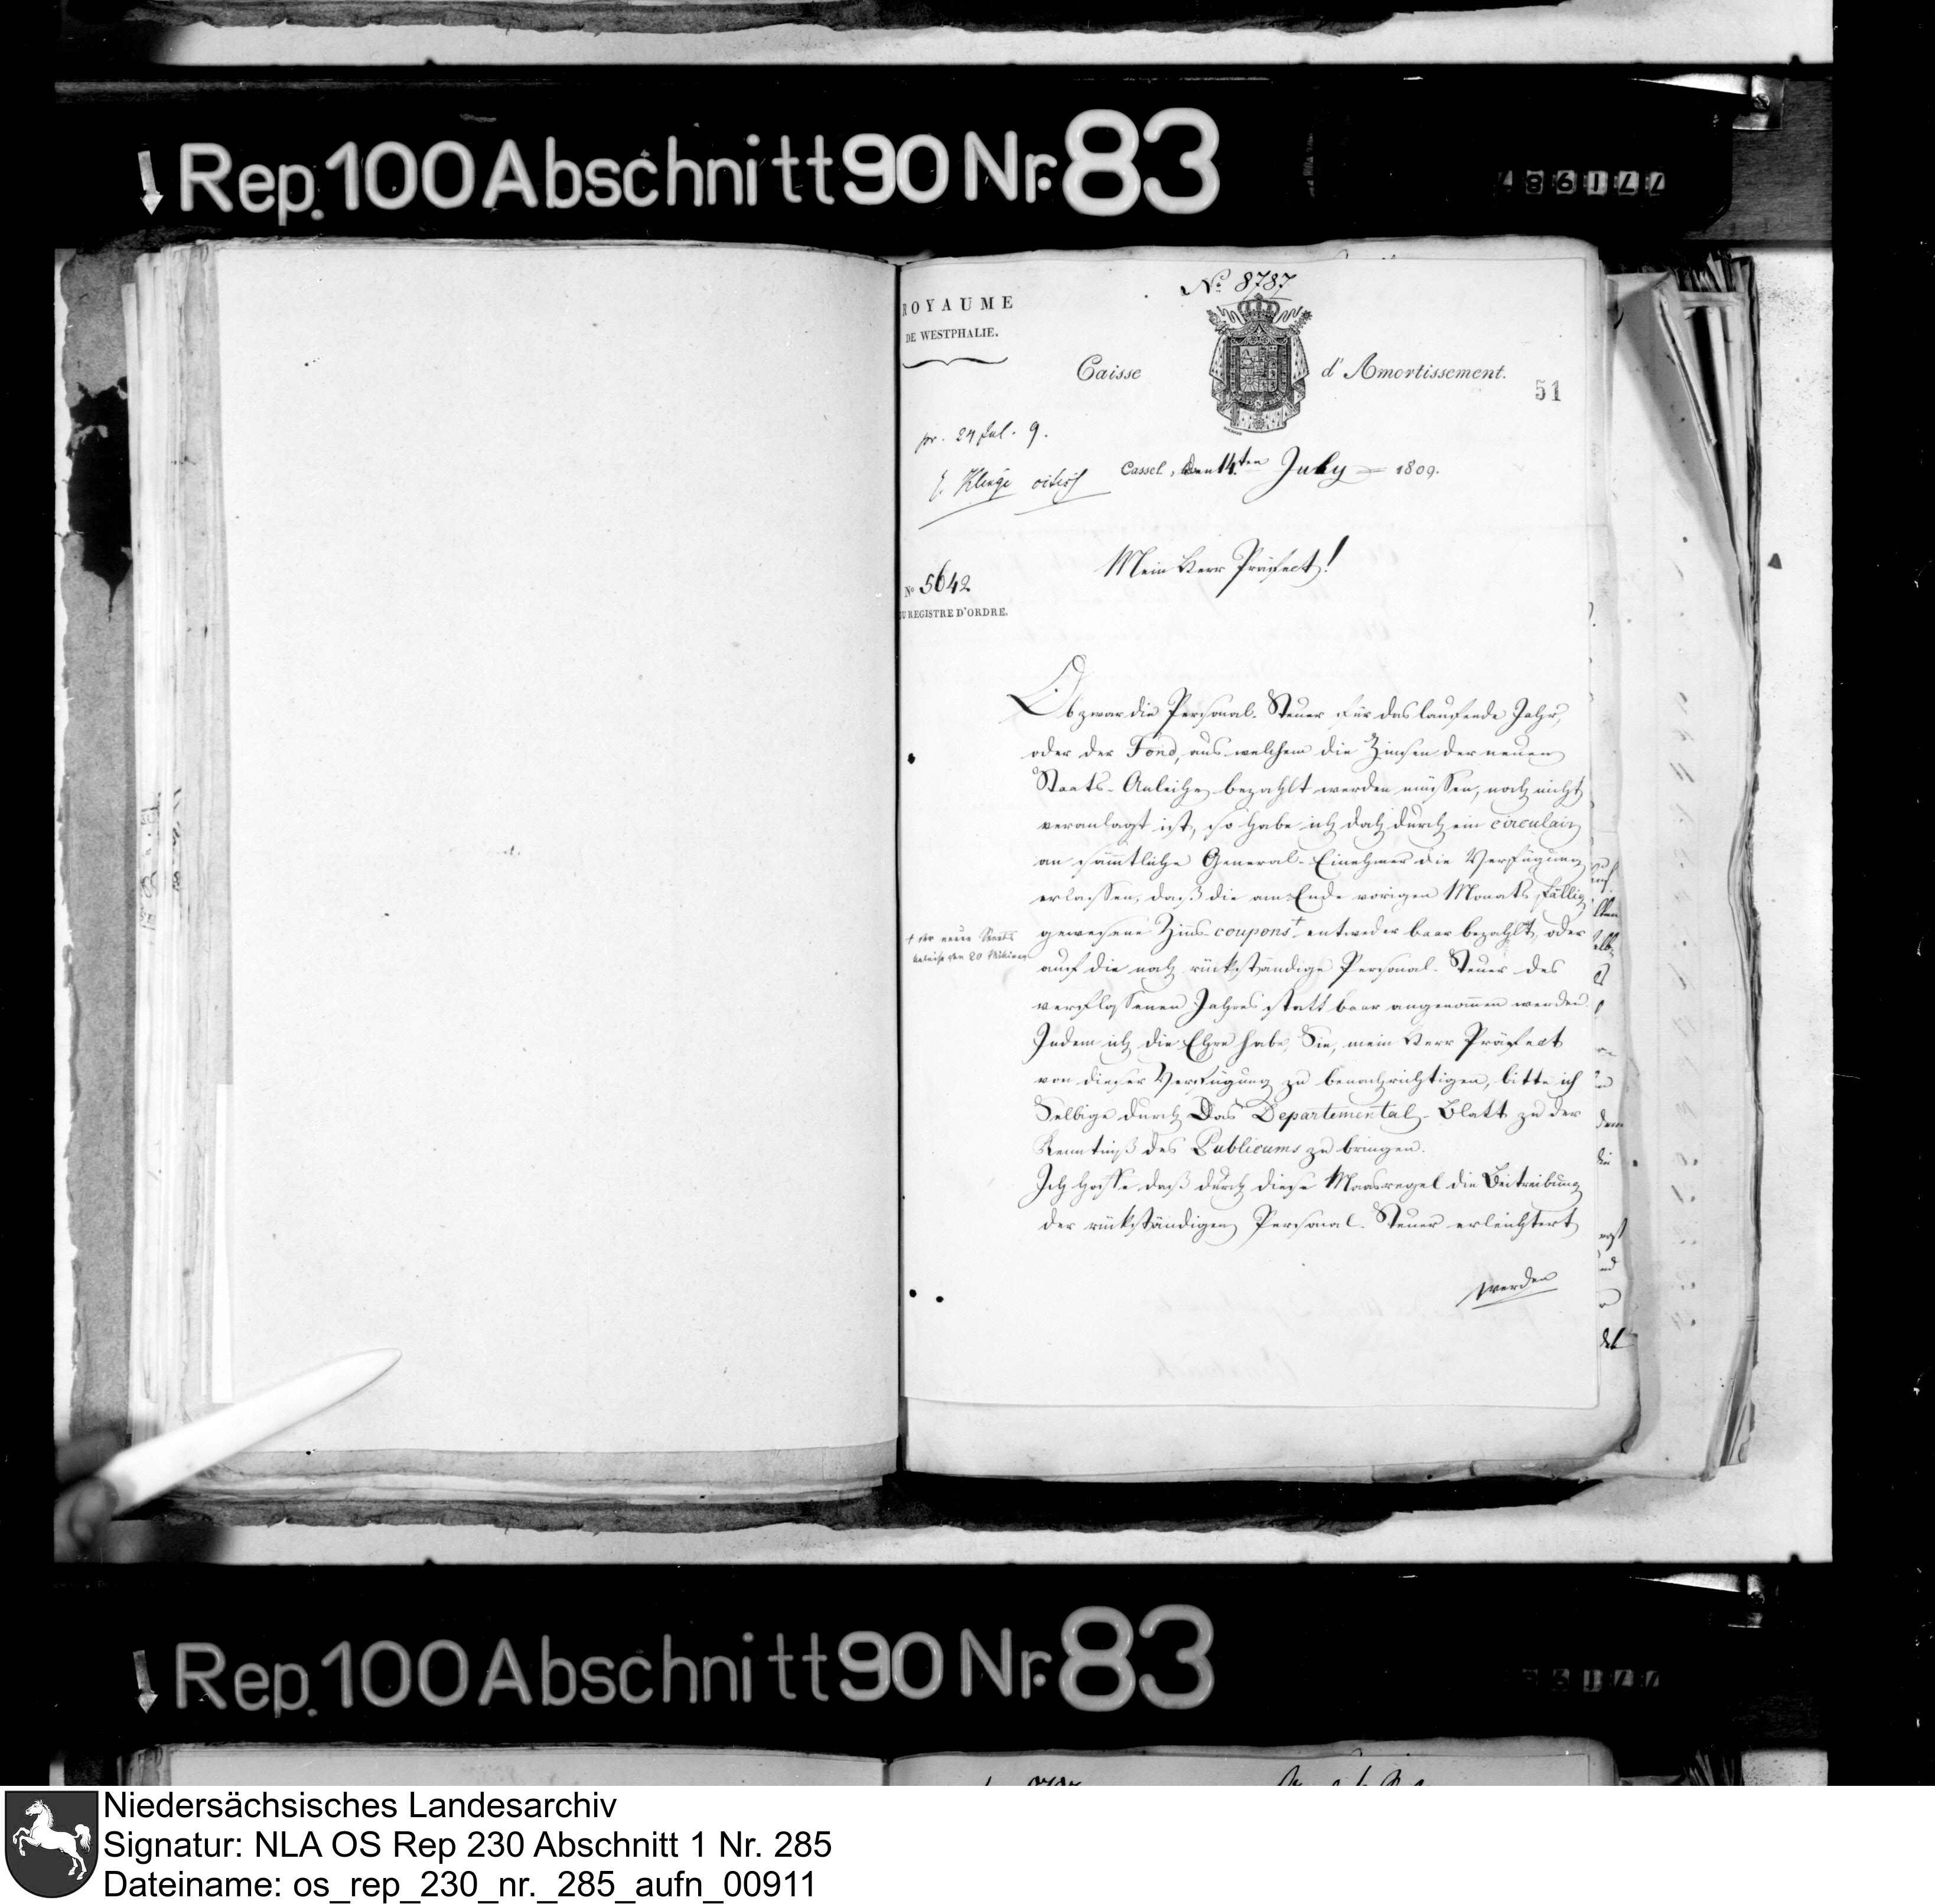 Rep. 100 Abschnitt 90 Nr. 83
771987
No. 8787
ROYAUME
DE WESTPHALIE.
Caisse d'Amortissement.
51
pr. 24 Jul. 9.
Cassel, den 14.ten July 1809.
Mein Herr Präfect!
No 5642
DU REGISTRE D'ORDRE.
Obzwar die Personal-Steuer für das laufende Jahr,
oder der Fond, aus welchem die Zinsen der neuen
Staats-Anleihe bezahlt werden müssen, noch nicht
veranlagt ist, so habe ich doch durch ein circulair
an sämtliche General-Einehmer die Verfügung
erlassen, daß die am Ende vorigen Monats fällig
gewesene Zins-coupons + entweder baar bezahlt, oder
+ der neuen Staats
Anleihe von 20 Millionen
auf die noch rückständige Personal-Steuer des
verflossenen Jahres statt baar angenommen werden.
Indem ich die Ehre habe, Sie, mein Herr Präfect
von dieser Verfügung zu benachrichtigen, bitte ich
Selbige durch Das Departemental-Blatt zu der
Kenntniß des Publicums zu bringen.
Ich hoffe daß durch diese Maasregel die Beitreibung
der rückständigen Personal-Steuer erleichtert
werden
Rep. 100 Abschnitt 90 Nr. 83
Niedersächsisches Landesarchiv
Signatur: NLA OS Rep 230 Abschnitt 1 Nr. 285
Dateiname: os_rep_230_nr._285_aufn_00911